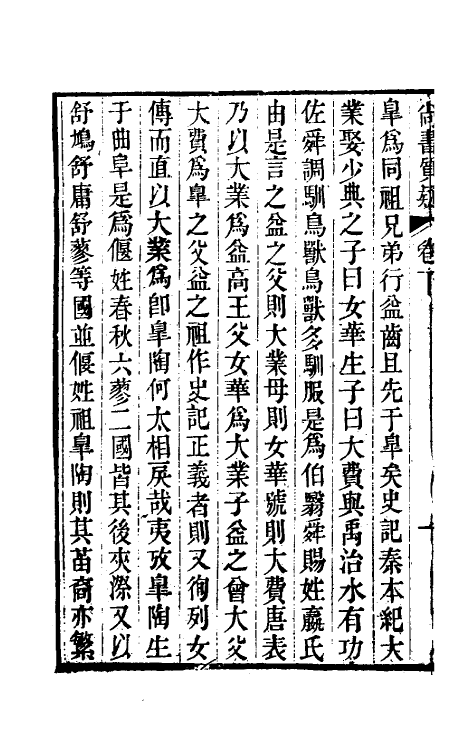 尚書質疑 卷下
皐爲同祖兄弟行益齒且先于皐矣史記秦本紀大
業娶少典之子曰女華生子曰大費與禹治水有功
佐舜調馴鳥獸鳥獸多馴服是爲伯翳舜賜姓嬴氏
由是言之益之父則大業母則女華號則大費唐表
乃以大業爲益高王父女華爲大業子益之曾大父
大費爲皐之父益之祖作史記正義者則又徇列女
傳而直以大業爲卽皐陶何太相戾哉夷攷皐陶生
于曲阜是爲偃姓春秋六蓼二國皆其後夾漈又以
舒鳩舒庸舒蓼等國並偃姓祖皐陶則其苗裔亦繁